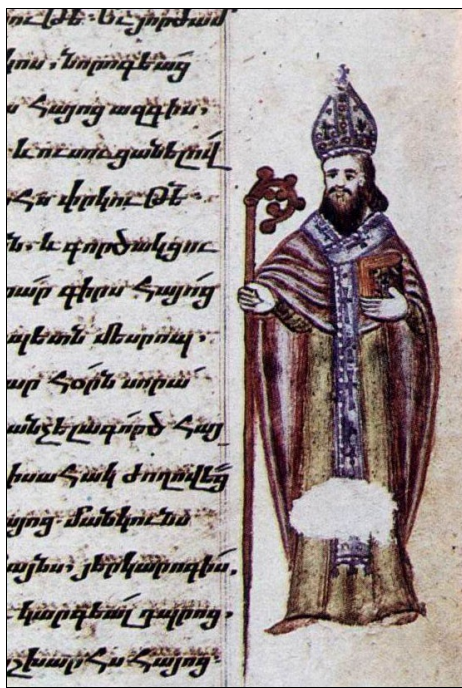 ութե՛. եւ յորժամ
կոս, նորոգեաց
ս Հայոց ազգիս,
և ուսուցանելով
Հս փրկութե՛
ն. և գործակցու
րար գիրս Հայոց
պետն մեսրոպ,
ար Հօրն սորա՛
անչելագործ Հայ
իսահակ ժողովեց
այոց մանկունս
այես, յերկարոգիս,
կարգեալ դպրոց,
շխարՀս Հայոց.